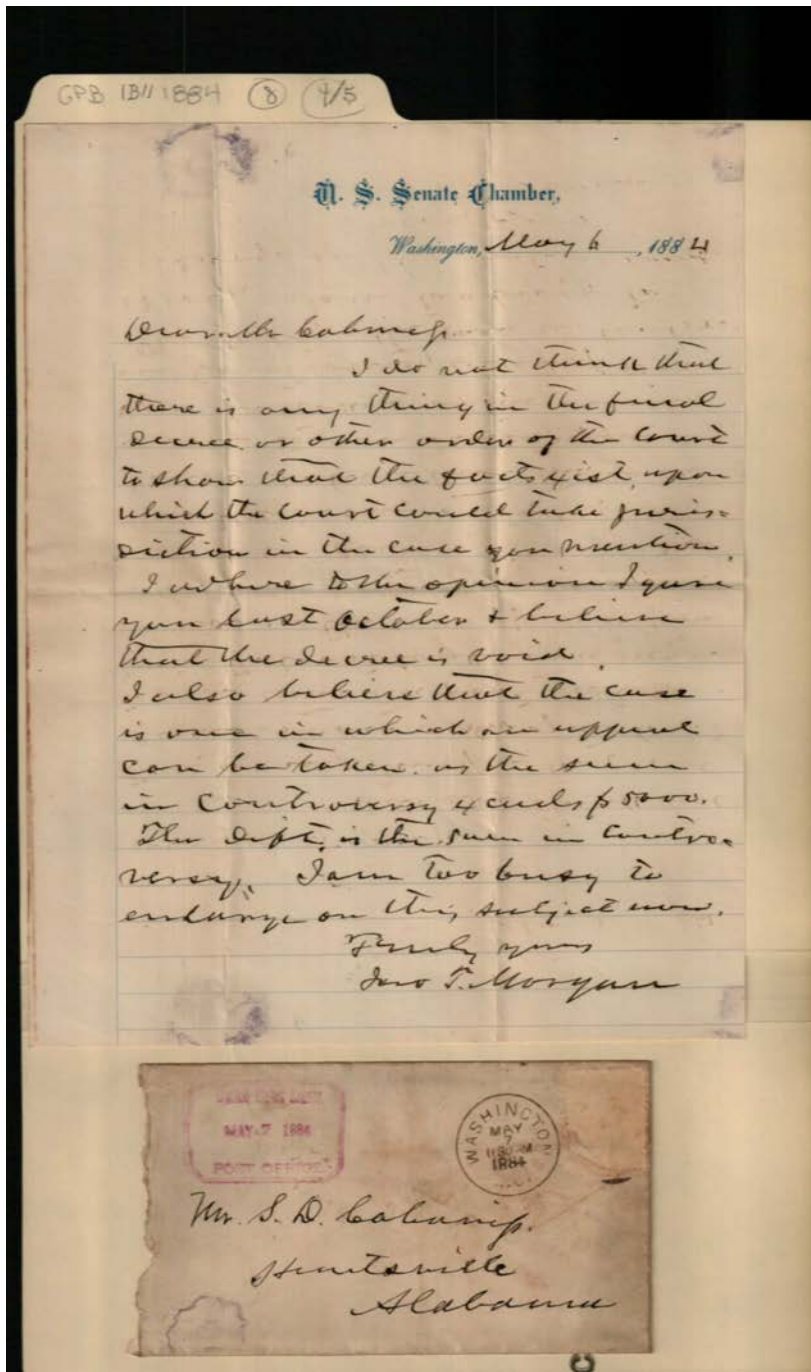 GPB 1B11 1884 8 4/5
U. S. Senate Chamber,
Washington, May 6, 1884
Dear Mr Cabaniss.
I do not think that
there is any thing in the final
decree or other orders of the Court
to show that the facts exist, upon
which the Court could take juris-
diction in the case you mention.
I adhere to the opinion I gave
you last October & believe
that the decree is void.
I also believe that the case
is one in which an appeal
can be taken, as the sum
in controversy exceeds $5000.
The Dift, is the sum in contro-
versy. I am too busy to
enlarge on this subject now.
Truly yours
Jno T. Morgan
MAY 7 1884
POST OFFICE
WASHINGTON
MAY
7
1884
Mr. S. D. Cabaniss.
Huntsville
Alabama